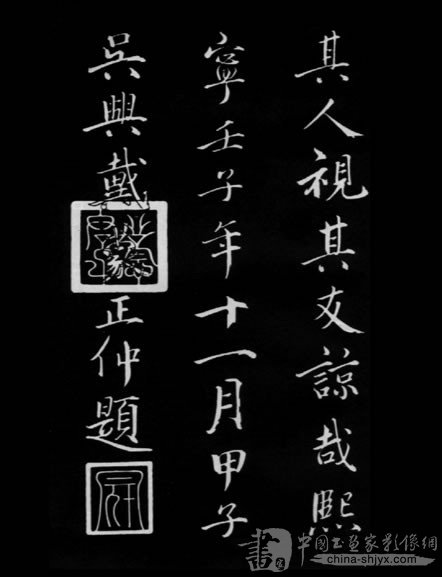 其人視其友諒哉熙
寧壬子年十一月甲子
吳興戴正仲題
中国书画家影像網
china-shjyx.com